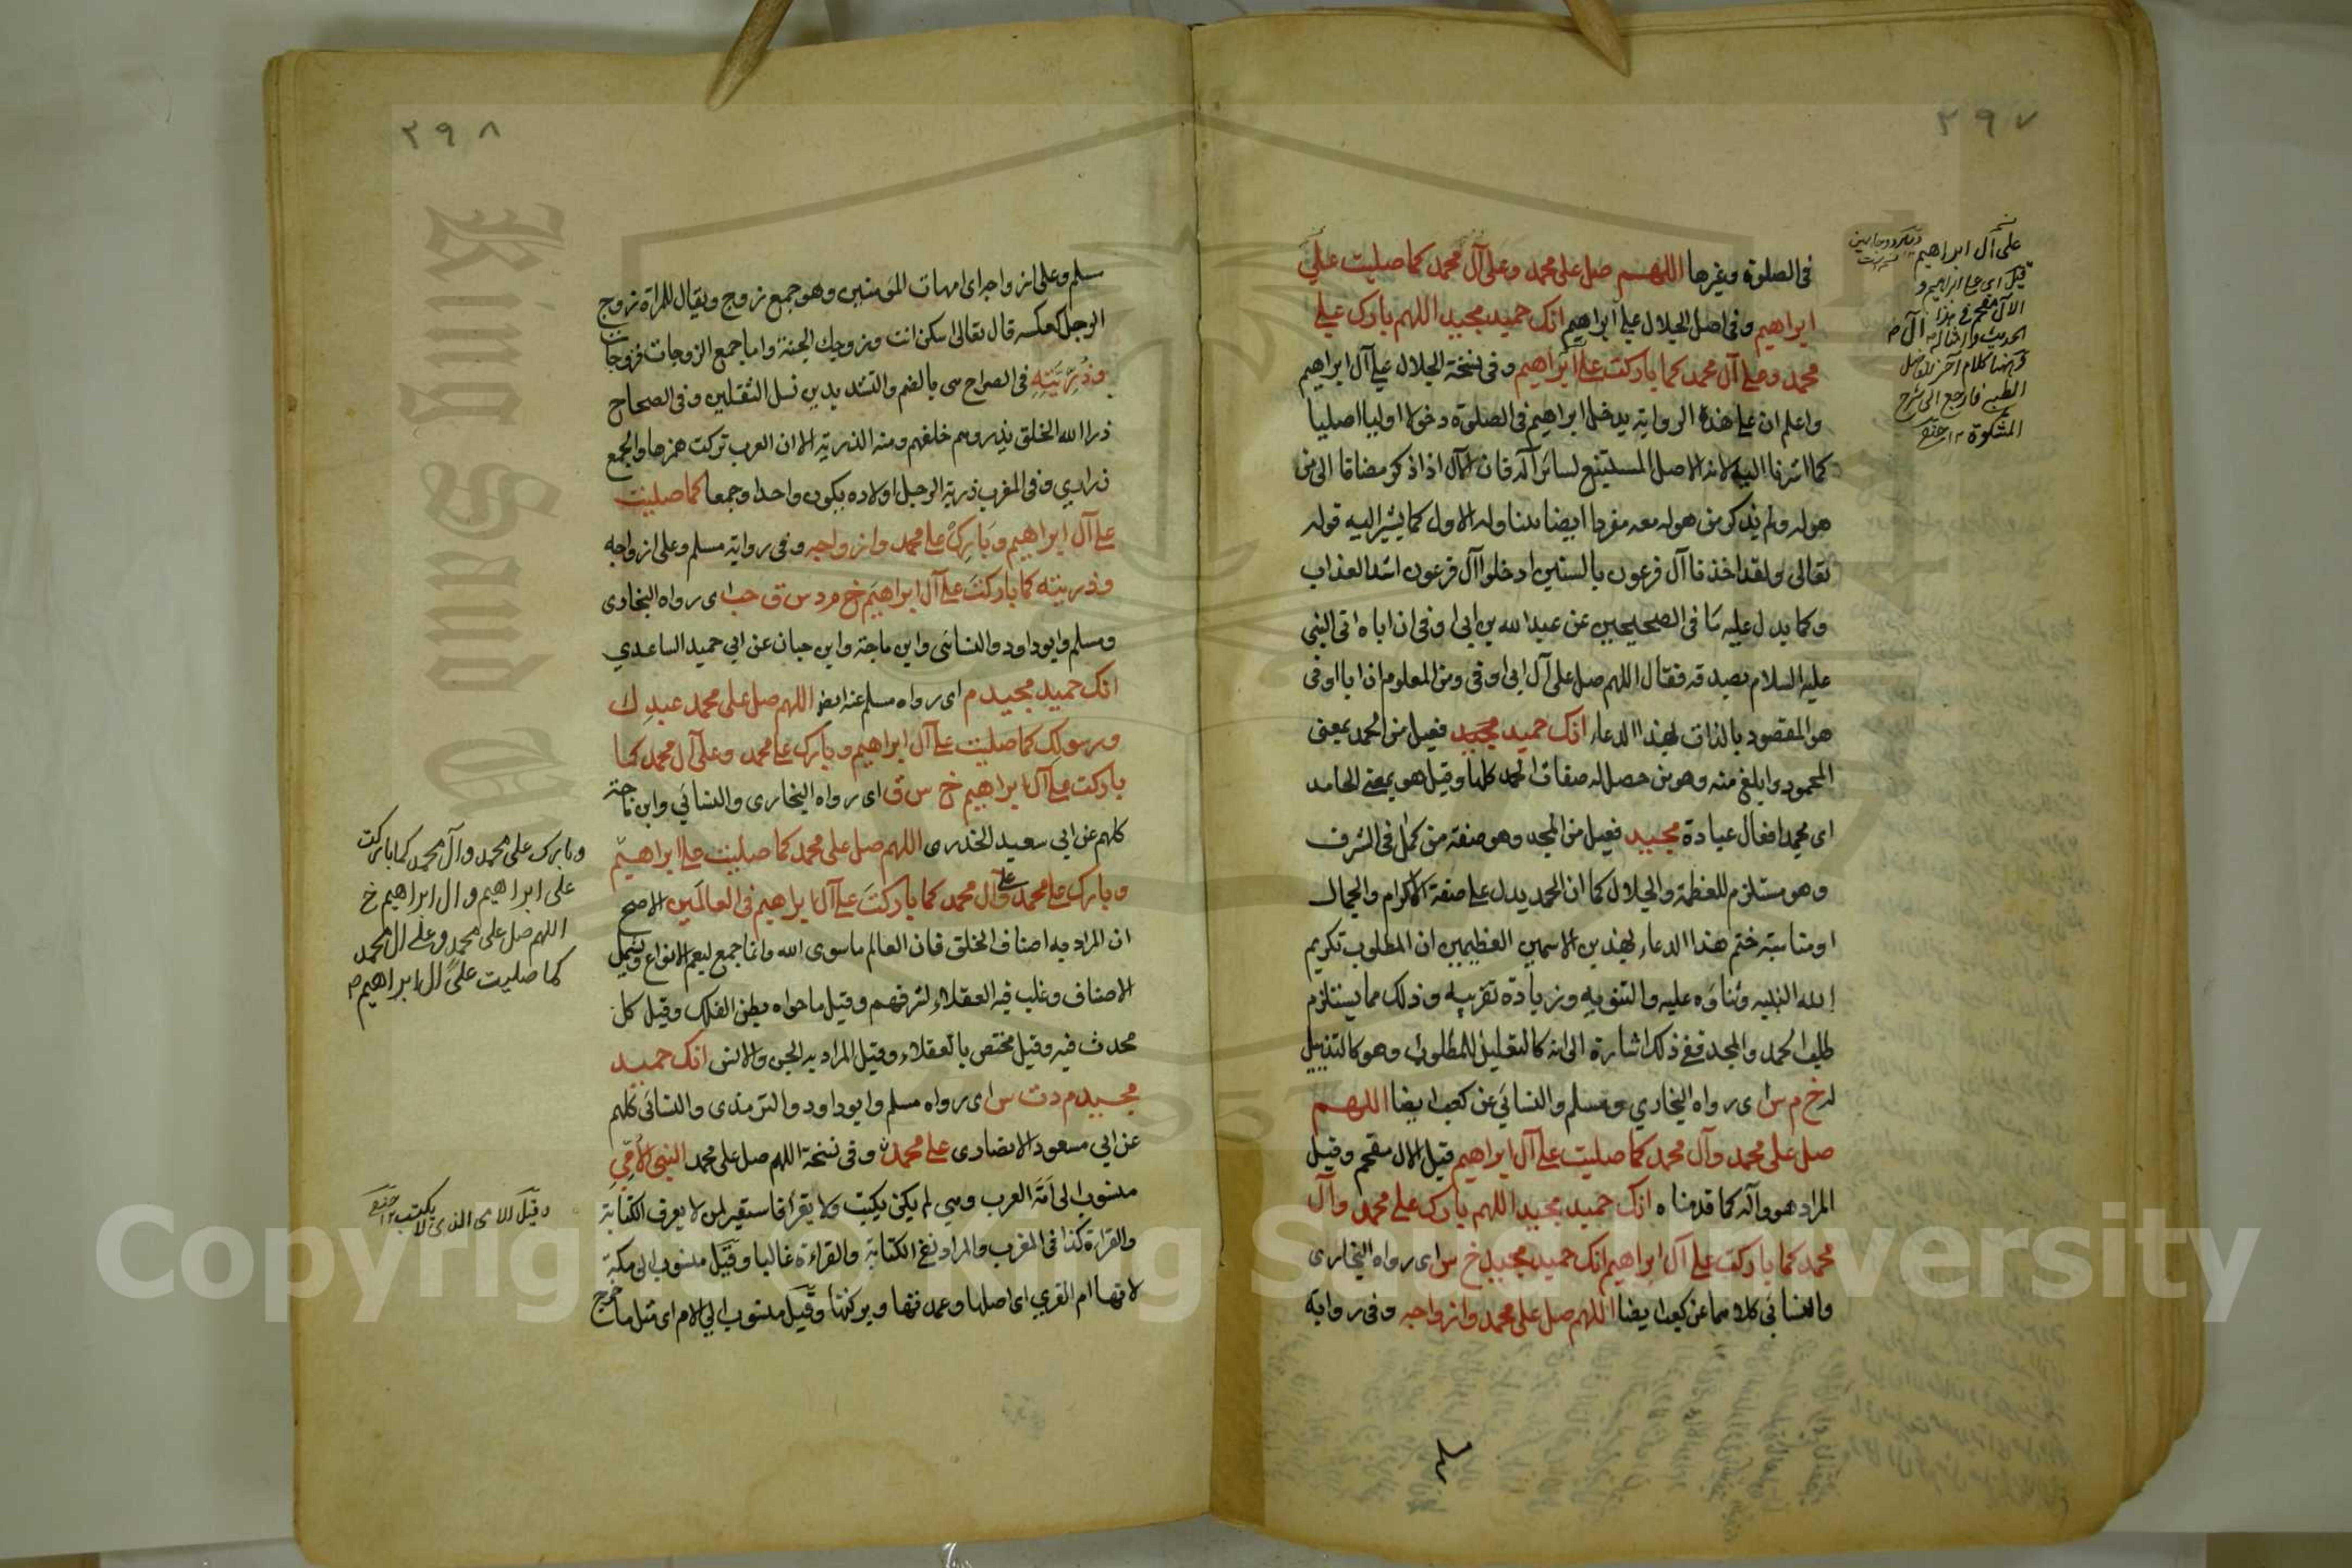 ٢٩٧
فى الصلوة وغيرها اللهم صل على محمد وعلى آل محمد كما صليت على
ابراهيم وفى اصل الجلال على آل ابراهيم انك حميد مجيد اللهم بارك على
محمد وعلى آل محمد كما باركت على آل ابراهيم وفى نسخة الجلال على آل ابراهيم
واعلم ان على هذه الرواية يدخل ابراهيم فى الصلوة دخولا اوليا اصليا
كما اشرنا اليه لانه الاصل المستتبع لسائر آله فان الآل اذا ذكر مضافا الى من
هو له ولم يذكر من هو له معه مفردا ايضا يتناوله الاول كما يشير اليه قوله
تعالى ولقد اخذنا آل فرعون بالسنين ادخلوا آل فرعون اشد العذاب
وكما يدل عليه ما فى الصحيحين عن عبد الله بن ابى اوفى ان اباه اتى النبى
عليه السلام بصدقه فقال اللهم صل على آل ابى اوفى ومن المعلوم ان ابا اوفى
هو المقصود بالذات بهذا الدعاء انك حميد مجيد فعيل من الحمد بمعنى
المحمود وابلغ منه وهو من حصل له صفات الحمد كلها وقيل هو بمعنى الحامد
اى يحمد افعال عباده مجيد فعيل من المجد وهو صفة من كمل فى الشرف
وهو مستلزم للعظمة والجلال كما ان الحمد يدل على صفة الاكرام والجمال
ومناسبة ختم هذا الدعاء بهذين الاسمين العظيمين ان المطلوب تكريم
الله النبيه وثناؤه عليه والتنويه وزيادة تقريبه وذلك مما يستلزم
طلب الحمد والمجد ففى ذلك اشارة الى انه كالتعليل للمطلوب وهو كالتذييل
له خ م س اى رواه البخاري ومسلم والنسائي عن كعب ايضا اللهم
صل على محمد وآل محمد كما صليت على آل ابراهيم قيل الال مقحم وقيل
المراد هو وآله كما قدمناه انك حميد مجيد اللهم بارك على محمد وآل
محمد كما باركت على آل ابراهيم انك حميد مجيد خ س اى رواه البخارى
والنسائى كلاهما عن كعب ايضا اللهم صل على محمد وازواجه وفى رواية
على آل ابراهيم
قيل اى على ابراهيم و
الآل مقحم فى هذا
الطيبى فارجع الى شرح
المشكوة ١٢
٢٩٨
مسلم وعلى ازواجه اى امهات المؤمنين وهو جمع زوج ويقال للمراة زوج
الرجل كعكسه قال تعالى اسكن انت وزوجك الجنة واما جمع الزوجات فزوجات
وذريته فى الصراح هى بالضم والتشديدين نسل الثقلين وفى الصحاح
ذرا الله الخلق يذروهم خلقهم ومنه الذرية الا ان العرب تركت همزها والجمع
ذرارى وفى المغرب ذرية الرجل اولاده يكون واحدا وجمعا كما صليت
على آل ابراهيم وبارك على محمد وازواجه وفى رواية مسلم وعلى ازواجه
وذريته كما باركت على آل ابراهيم خ م د س ق حب اى رواه البخارى
ومسلم وابو داود والنسائى وابن ماجة وابن حبان عن ابي حميد الساعدي
انك حميد مجيد م اى رواه مسلم عنه ايضا اللهم صل على محمد عبدك
ورسولك كما صليت على آل ابراهيم وبارك على محمد وعلى آل محمد كما
باركت على آل ابراهيم خ س ق اى رواه البخارى والنسائي وابن ماجة
كلهم عن ابي سعيد الخدرى اللهم صل على محمد كما صليت على ابراهيم
وبارك على محمد وعلى آل محمد كما باركت على آل ابراهيم فى العالمين الاصح
ان المراد به اصناف الخلق فان العالم ما سوى الله وانما جمع ليعم الانواع ويشمل
الاصناف وغلب فيه العقلاء لشرفهم وقيل ما حواه بطن الفلك وقيل كل
محدث فيه وقيل مختص بالعقلاء وقيل المراد به الجن والانس انك حميد
مجيد م د ت س اى رواه مسلم وابو داود والترمذى والنسائى كلهم
عن ابي مسعود الانصارى على محمد وفى نسخة اللهم صل على محمد النبى الامى
منسوب الى امة العرب وهى لم يكن يكتب ولا يقرأ فاستعير لمن لا يعرف الكتابة
والقراءة كذا فى المغرب والمراد نفى الكتابة والقراءة غالبا وقيل منسوب الى مكة
لانها ام القرى اى اصلها وعمدتها وبركتها وقيل منسوب الى الام اى مثل ما خرج
وبارك على محمد وآل محمد كما باركت
على ابراهيم وال ابراهيم خ
اللهم صل على محمد وعلى ال محمد
كما صليت على ال ابراهيم م
وقيل الامى الذى لا يكتب ١٢
Copyright © King Saud University
King Saud University
1957